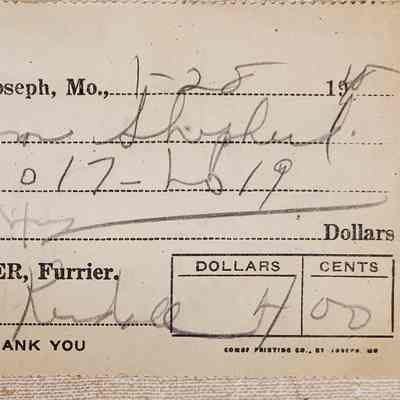 oseph, Mo., 1-28 19
Shepherd.
017-2019
Dollars
ER, Furrier. DOLLARS CENTS
4 00
ANK YOU
COMBF PRINTING CO., ST. JOSEPH, MO